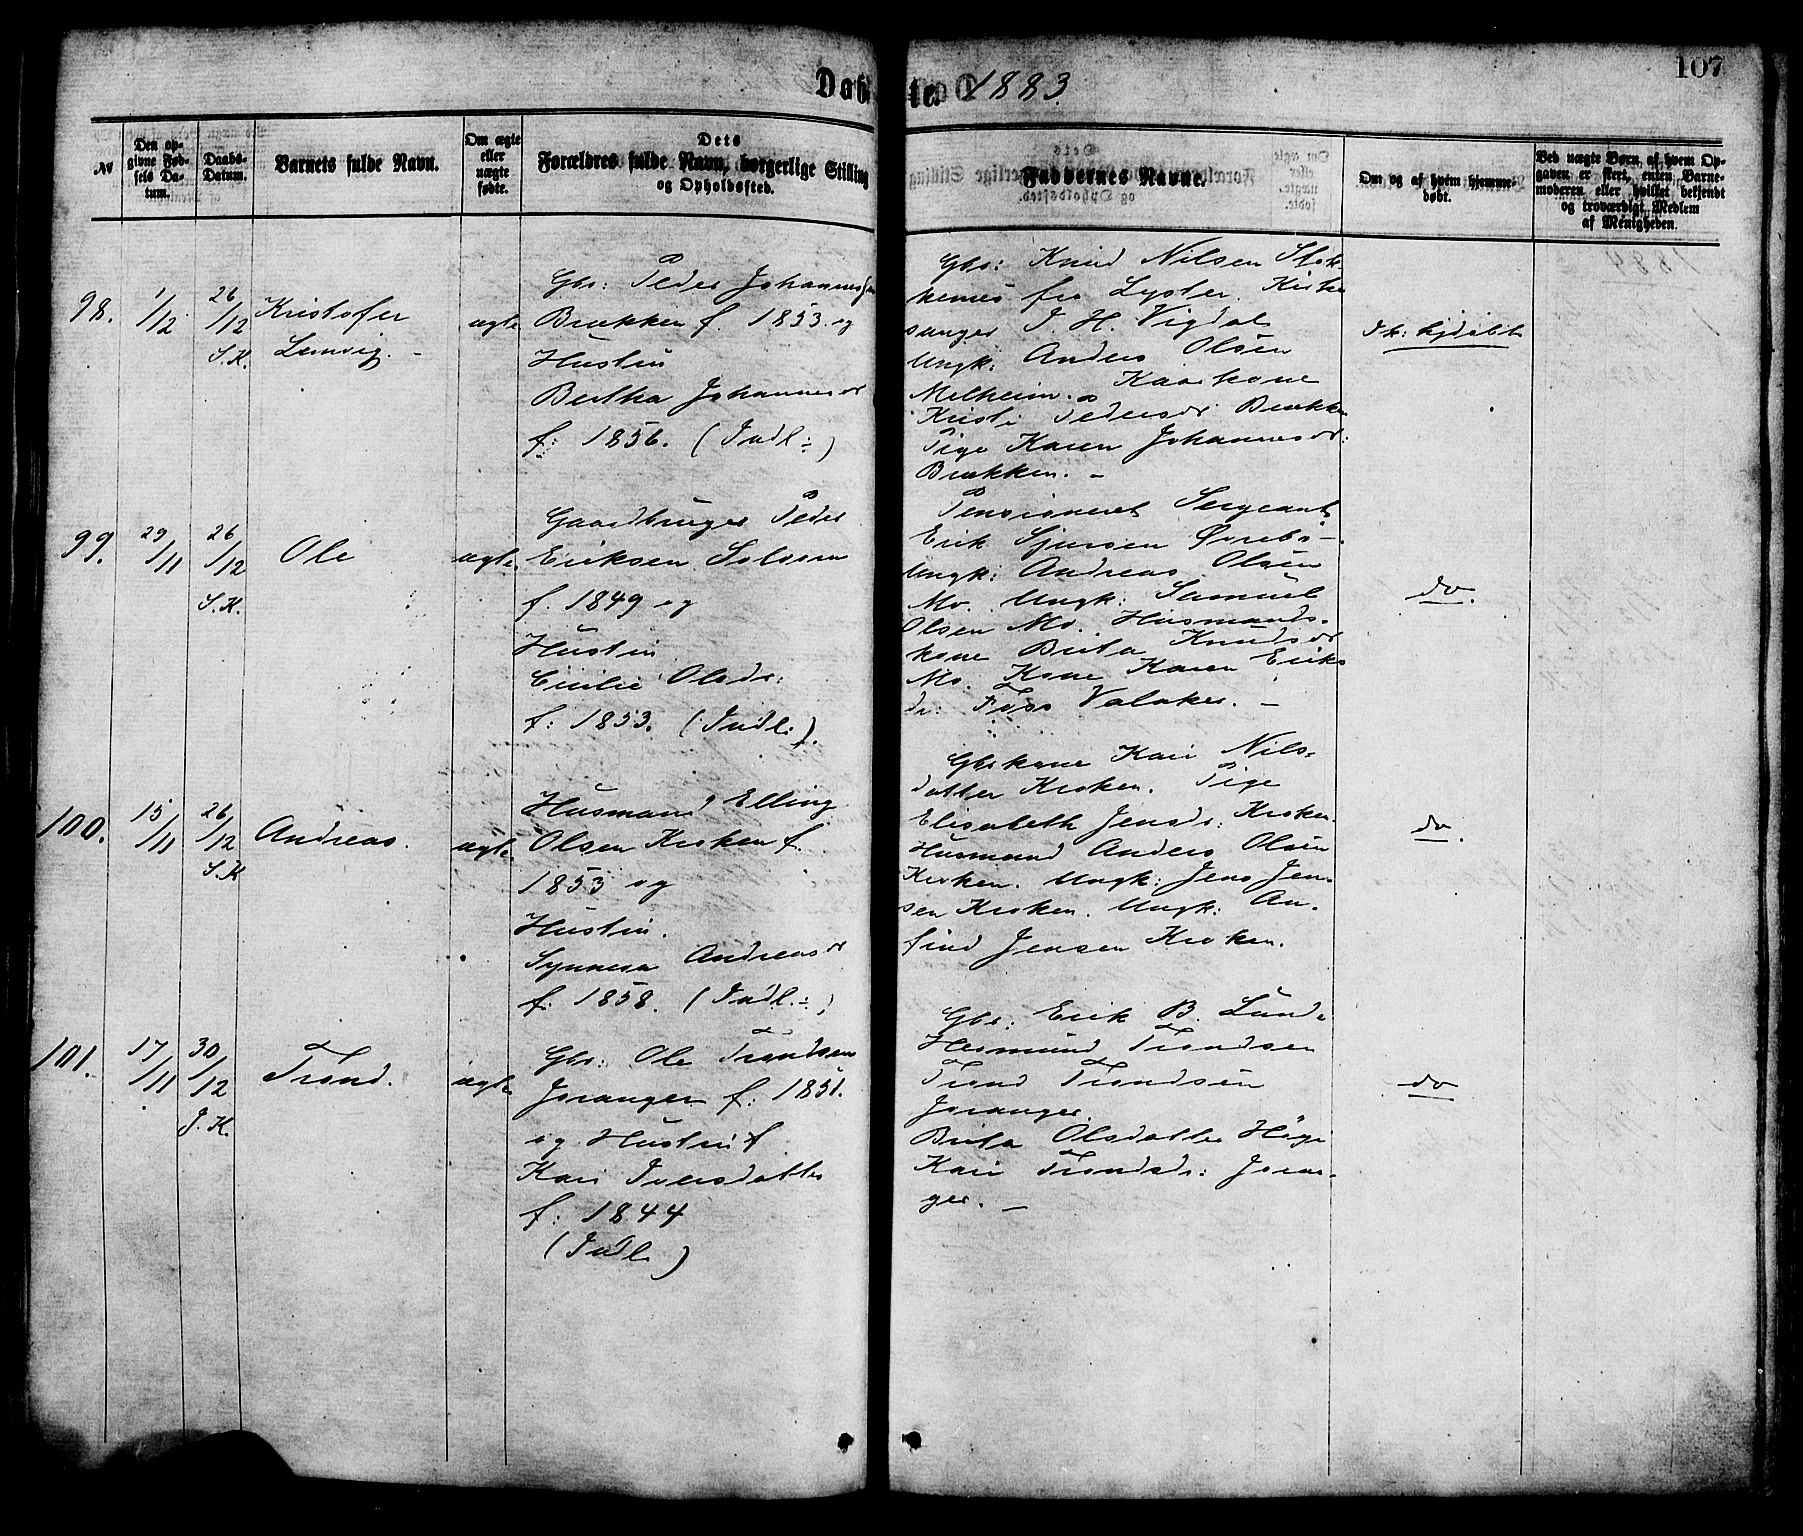 Døbte. 1883.
107
№
Den op-
givne Fød-
sels Da-
tum.
Daabs-
Datum.
Barnets fulde Navn.
Om ægte
eller
uægte
født.
Dets
Forældres fulde Navn, borgerlige Stilling
og Opholdssted.
Faddernes Navne.
Om og af hvem hjemme-
døbt.
Ved uægte Børn, af hvem Op-
gaven er skeet, enten Barne-
moderen eller hvilket bekjendt
og troværdigt Medlem
af Menigheden.
98.
1/12
26/12
S.K.
Kristofer
Lemvig. -
ægte
Gbr: Peder Johannessen
Brækken f. 1853. og
Hustru
Bertha Johannesdr
f: 1856. (Indl:)
Gbr: Knud Nilsen Stok-
kenes fra Lyster. Kirke
sanger I. H. Vigdal
Ungk: Anders Olsen
Melheim. Kaarkone
Kristi Pedersdr Brækken
Pige Karen Johannesdr:
Brækken. -
Ik: hjdøbt
99.
29/11
26/12
S.K.
Ole
ægte.
Gaardbruger Peder
Eriksen Solsem
f. 1849 og
Hustru
Cicilie Olsdr:
f: 1853. (Indl:).
Pensioneret Sergeant
Erik Sjursen Ørebø-.
Ungk: Andreas Olsen
Mo. Ungk: Samuel
Olsen Mo. Husmands-
kone Brita Knudsdr
Mo. Kone Karen Eriks
dr: Foss Valaker. -
do.
100.
15/11
26/12
S.K
Andreas.
ægte.
Husmand Elling
Olsen Kroken f.
1853 og
Hustru.
Synneva Andreasdr
f. 1858. (Indl.:)
Gbrkone Kari Nils-
datter Kroken. Pige
Elisabeth Jensdr: Kroken.
Husmand Anders Olsen
Kroken. Ungk: Jens Jen-
sen Kroken. Ungk: An-
find Jensen Kroken.
do.
101.
17/11
30/12
J.K.
Trond.
ægte
Gbr: Ole Trondsen
Joranger f: 1851.
og Hustru
Kari Iversdatter
f: 1844
(Indl.)
Gbr: Erik B. Lund.
Hermund Trondsen
Trond Trondsen
Joranger.
Brita Olsdatter Høgi
Kari Trondsdr: Joran-
ger. -
do